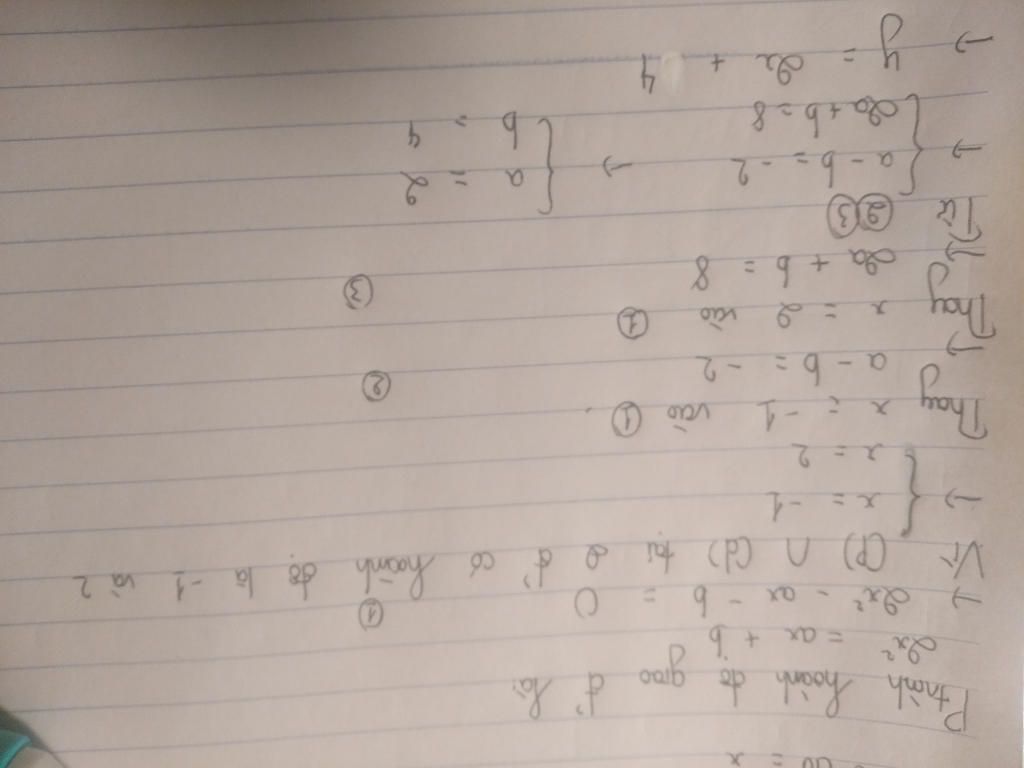 = x
Ptrình hoành độ giao đ' là:
2x² = ax + b
→ 2x² - ax - b = 0 ①
Vì (P) ∩ (d) tại 2 đ' có hoành độ là -1 và 2
→ { x = -1
x = 2
Thay x = -1 vào ①.
→ a - b = -2 ②
Thay x = 2 vào ①
→ 2a + b = 8 ③
Từ ②③
→ { a - b = -2 → { a = 2
2a + b = 8 b = 4
→ y = 2x + 4